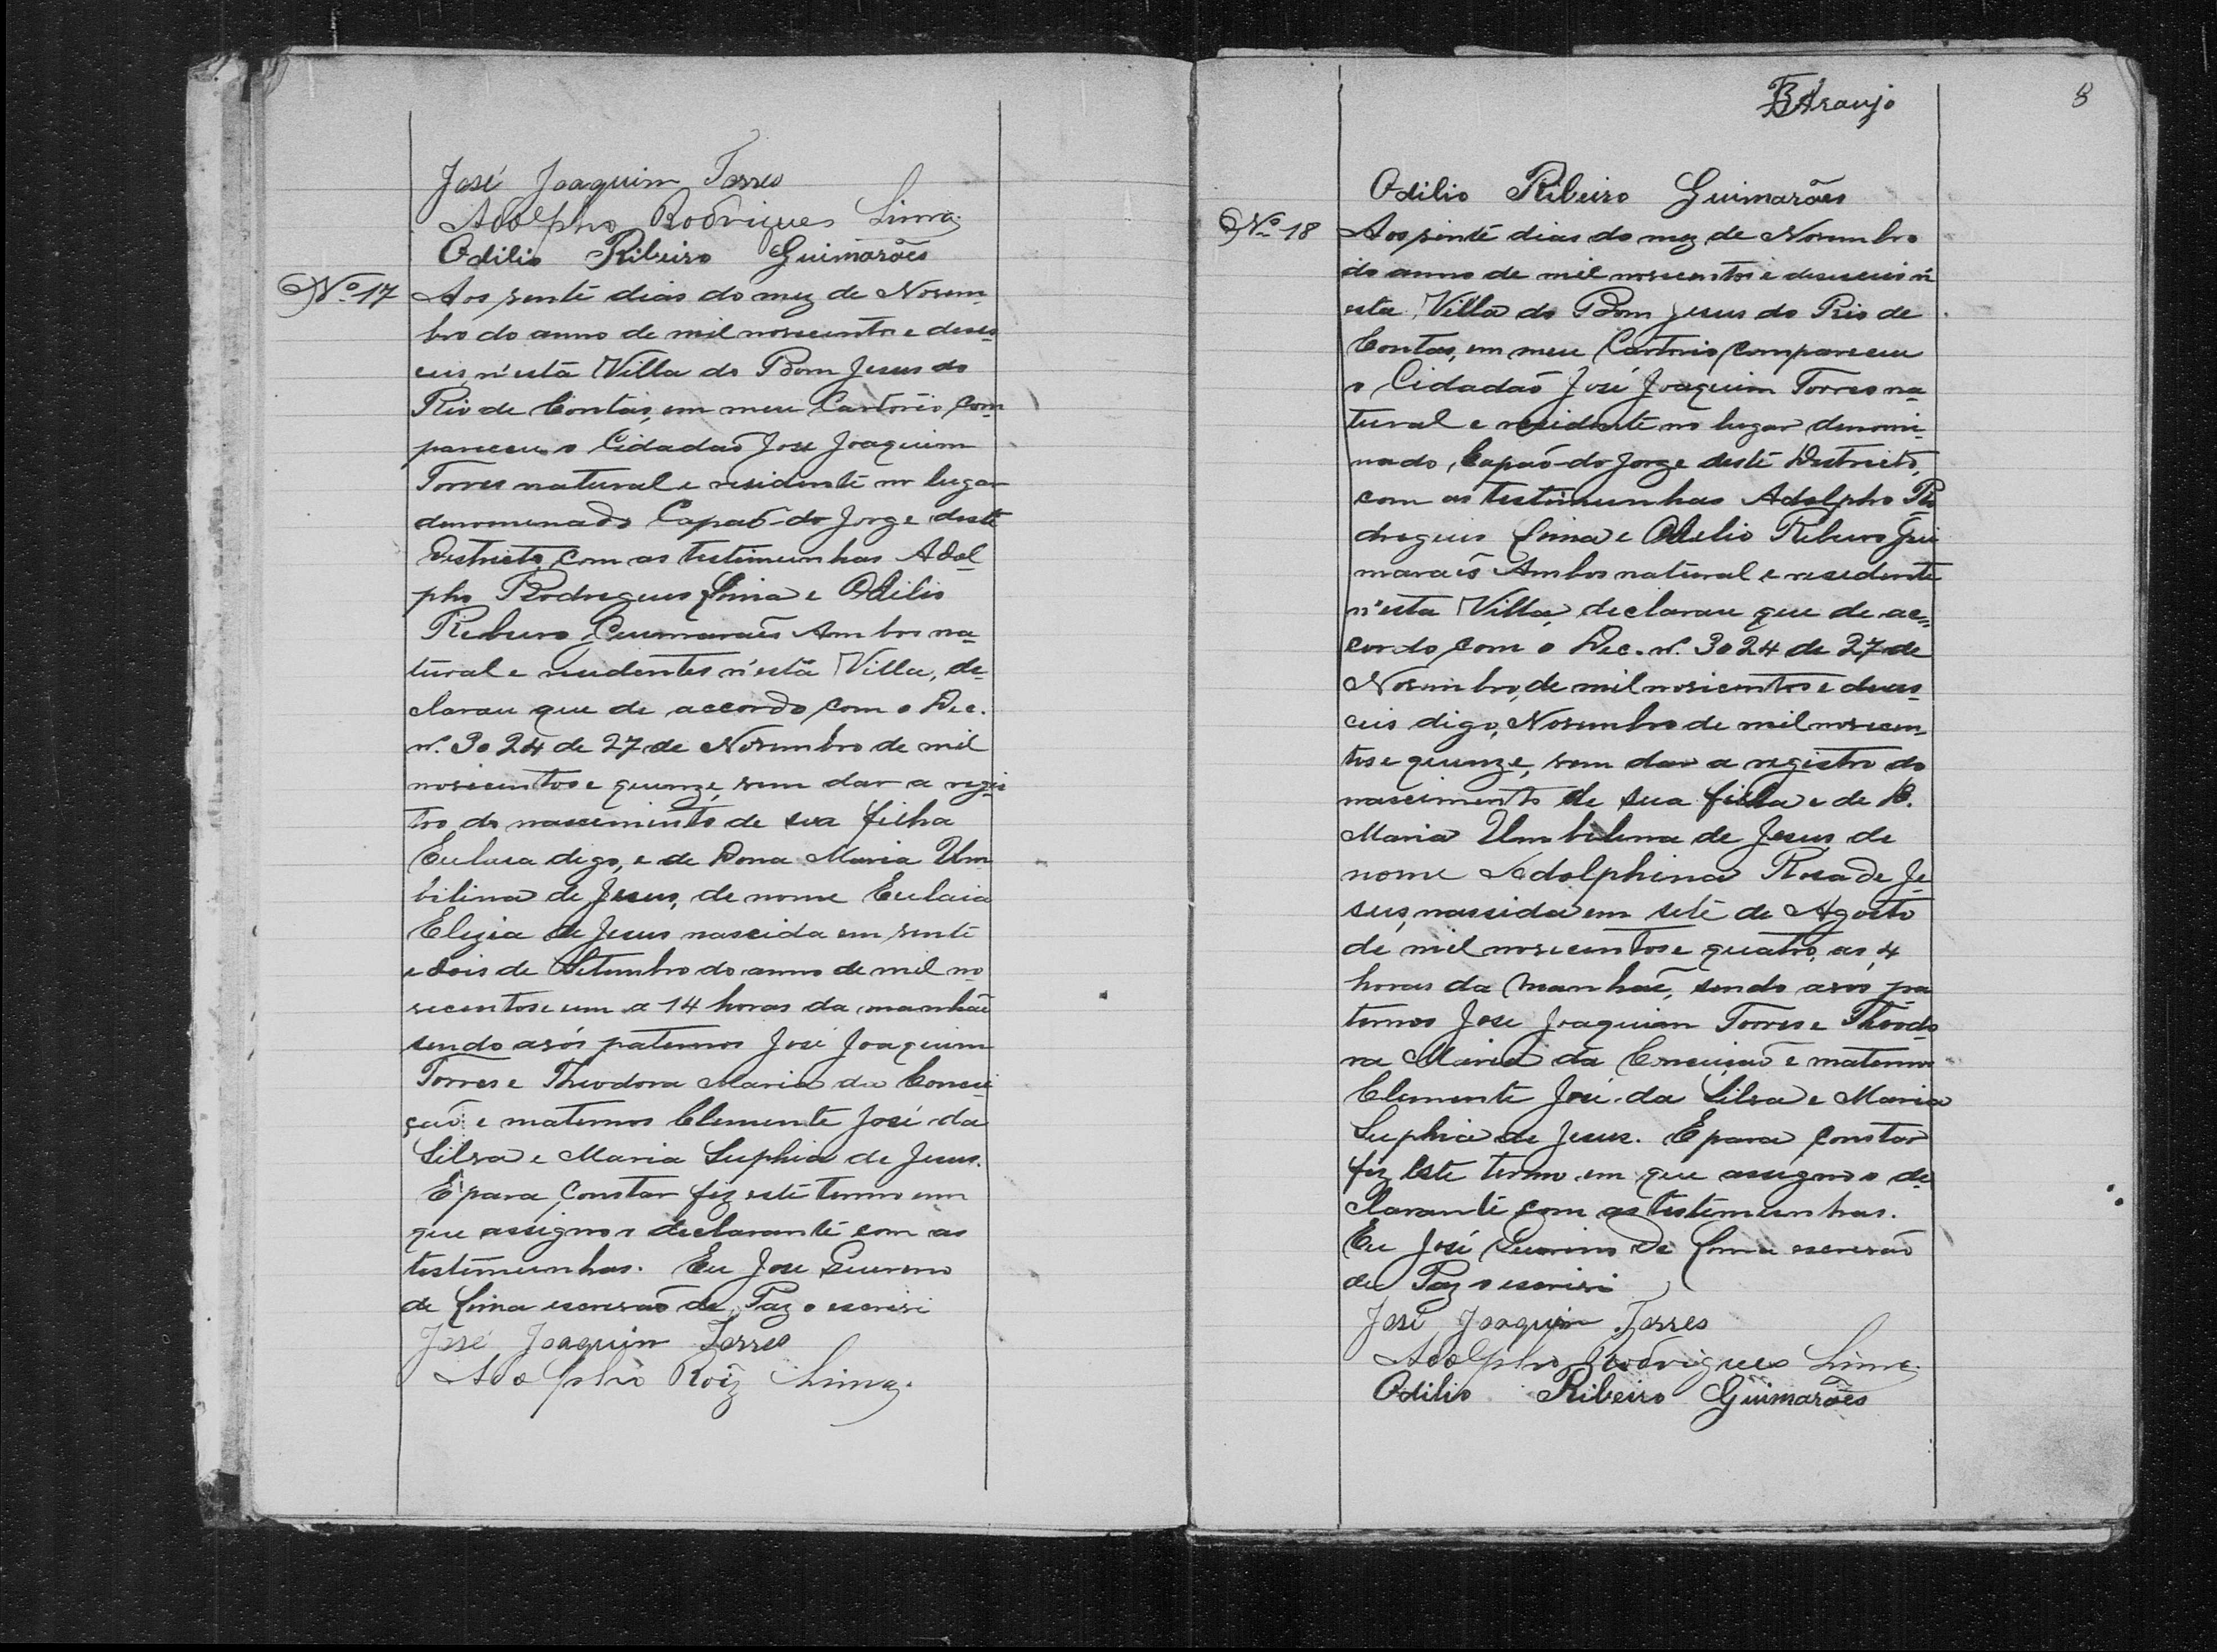 José Joaquim Torres
Adolpho Rodrigues Lima
Odilio Ribeiro Guimarães
Nº 17 Aos vente dias do mez de Novem-
bro do anno de mil novecentos e deses-
ceis, n'esta Villa do Bom Jesus do
Rio de Contas, em meu Cartorio com-
pareceu o Cidadaõ José Joaquim
Torres natural e residente no lugar
denomenado Capaõ-do Jorge deste
Destricto, com as testimunhas Adol-
pho Rodregues Lima e Odilio
Rebeiro Guimaraês Ambos na-
tural e resedentes n'esta Villa, de-
clarau que de accordo com o Dec.
nº. 3024 de 27 de Novembro de mil
novecentos e quenze, vem dar a regis-
tro do nascimento de sua filha
Eulaia digo, e de Dona Maria Um-
bilina de Jesus, de nome Eulaia
Elizia de Jesus nascida em vente
e dois de Setembro do anno de mil no-
vecentos e um a 14 horas da manhaẽ
sendo avós paternos José Joaquim
Torres e Theodora Maria da Concei-
çaõ e maternos Clemente José da
Silva e Maria Suphia de Jesus.
E para constar fiz este termo em
que assigno o declarante com as
testimunhas. Eu Jose Guereno
de Lima escrevaõ de Paz o escrivi
José Joaquim Torres
Adolpho Roiz Lima
BAraujo
8
Odilio Ribeiro Guimarães
Nº 18 Aos vente dias do mez de Novembro
do anno de mil novecentos e desesceis n'
esta Villa do Bom Jesus do Rio de
Contas, em meu Cartorio, compareceu
o Cidadaõ José Joaquim Torres na-
tural e residente no lugar denomi-
nado, Capaõ-do Jorge deste Destricto,
com as testimunhas Adolpho Ro
dregues Lima e Odelio Rebeiro Gui
maraês Ambos natural e resedente
n'esta Villa, declarau que de ac-
cordo com o Dec. nº. 3024 de 27 de
Novembro, de mil novicentos e deses
ceis digo, Novembro de mil novecen
tos e quenze, vem dar a registro do
nascimento de sua filha e de D.
Maria Umbelina de Jesus de
nome Adolphina Rosa de Je-
sus, nascida em sete de Agosto
de mil novecentos e quatro, as 4
horas da manhaẽ, sendo avos pa
ternos Jose Joaquim Torres e Theodo
ra Maria da Conceiçaõ e maternos
Clemente José da Silva e Maria
Suphia de Jesus. E para constar
fiz este termo em que assigno o de-
clarante com as testimunhas.
Eu José Guereno de Lima escrevaõ
de Paz o escrivi
José Joaquim Torres
Adolpho Rodrigues Lima
Odilio Ribeiro Guimarães